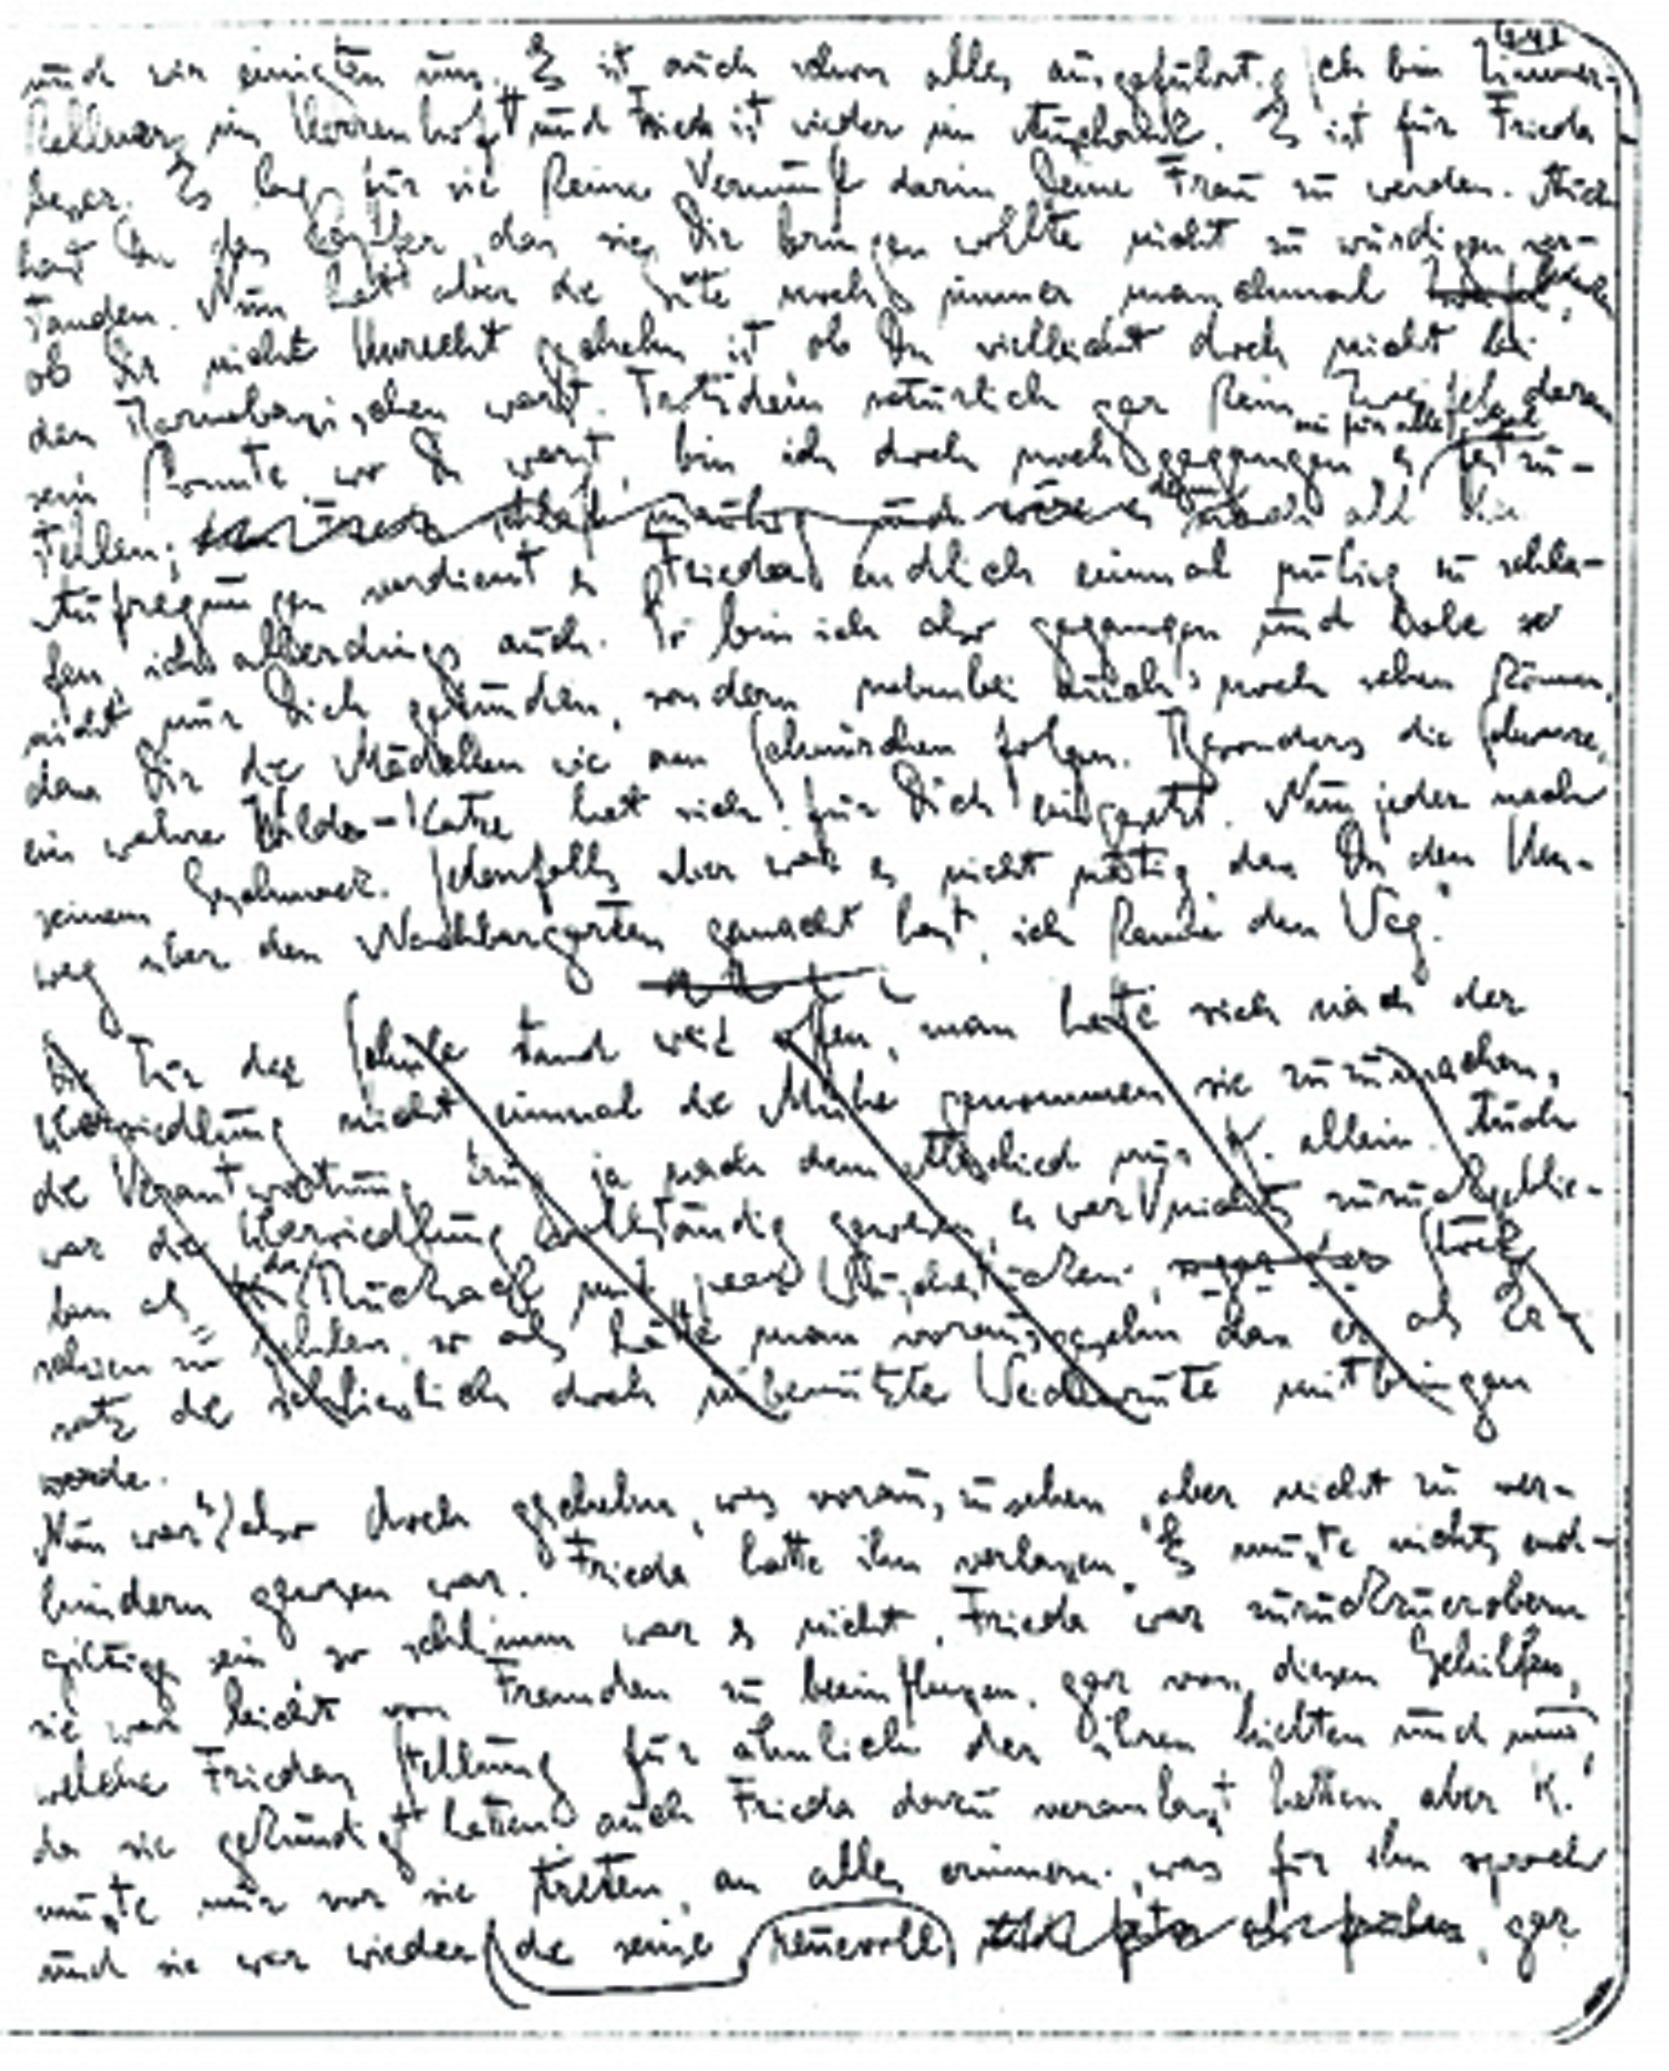 und wir einigten uns. Es ist auch schon alles ausgeführt. Ich bin Zimmer-
kellner im Herrenhof und Frieda ist wieder im Ausschank. Es ist für Frieda
besser. Es lag für sie keine Vernunft darin Deine Frau zu werden. Auch
hast Du das Opfer, das sie Dir bringen wollte nicht zu würdigen ver-
standen. Nun hat aber die Gute noch immer manchmal
ob Dir nicht Unrecht geschehn ist ob Du vielleicht doch nicht bei
den Barnabasischen warst. Trotzdem natürlich gar kein Zweifel daran
sein konnte wo Du warst, bin ich doch noch gegangen es ein für allemal festzu-
stellen; nach all den
Aufregungen verdient es Frieda endlich einmal ruhig zu schla-
fen, ich allerdings auch. So bin ich also gegangen und habe
nicht nur Dich gefunden, sondern nebenbei auch noch sehen können,
dass Dir die Mädchen wie am Schnürchen folgen. Besonders die Schwarze,
ein wahre Wild-Katze hat sich für Dich eingesetzt. Nun jeder nach
seinem Geschmack. Jedenfalls aber war es nicht nötig dass Du den Um-
weg über den Nachbargarten gemacht hast, ich kenne den Weg."
Die Tür der Schule stand weit offen, man hatte sich nach der
Übersiedlung nicht einmal die Mühe genommen sie zuzumachen,
die Verantwortung trug ja nach dem Abschied nur K. allein. Auch
war die Übersiedlung vollständig gewesen, es war nichts zurückgeblie-
ben als der Rucksack mit paar Wäschestücken,
schien zu fehlen, so als hätte man vorausgesehn dass er als Er-
satz die schließlich doch unbenützte Weidenrute mitbringen
werde.
Nun war also doch geschehn, was vorauszusehen, aber nicht zu ver-
hindern gewesen war. Frieda hatte ihn verlassen. Es musste nichts end-
giltiges sein so schlimm war es nicht, Frieda war zurückzuerobern
sie war leicht von Fremden zu beeinflussen, gar von diesen Gehilfen,
welche Friedas Stellung für ähnlich der ihren hielten und nun,
da sie gekündigt hatten auch Frieda dazu veranlasst hatten aber K.
musste nur vor sie treten, an alles erinnern, was für ihn sprach
und sie war wieder die seine reuevoll, gar